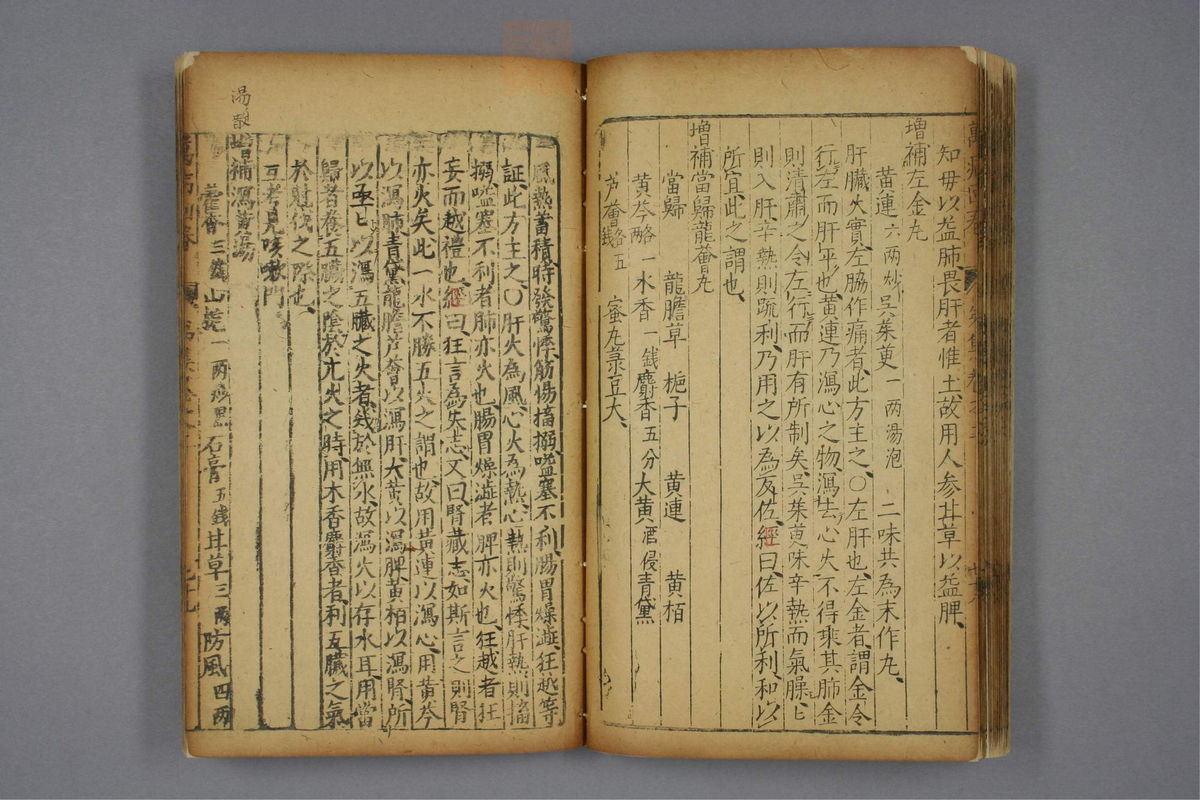 知毋以益肺畏肝者惟土故用人參甘草以益脾
增補左金丸
黄連六两炒吳茱萸一两湯泡 二味共為末作丸
肝臟火實左脇作痛者此方主之〇左肝也左金者謂金令
行左而肝平也黄連乃瀉心之物瀉去心火不得乘其肺金
則清肅之令左行而肝有所制矣吳茱萸味辛熱而氣臊匕
則入肝辛熱則疏利乃用之以為反佐經曰佐以所利和以
所宜此之謂也
增補當歸龍薈丸
當歸 龍膽草 梔子 黄連 黄栢
黄芩各一两 木香一錢麝香五分大黄酒侵青黛
芦薈各五錢 蜜丸菉豆大
風熱蓄積時發驚悸筋惕搐搦嗌塞不利腸胃燥澁狂越等
証此方主之〇肝火為風心火為熱心熱則驚悸肝熱則搐
搦嗌塞不利者肺亦火也腸胃燥澁者脾亦火也狂越者狂
妄而越禮也經曰狂言為失志又曰腎藏志如斯言之則腎
亦火矣此一水不勝五火之謂也故用黄連以瀉心用黄芩
以瀉肺青黛龍膽芦薈以瀉肝大黄以瀉脾黄栢以瀉腎所
以亟匕以瀉五臟之火者幾於無水故瀉火以存水耳用當
歸者養五臟之陰於亢火之時用木香麝香者利五臟之氣
於尅伐之際也
互考見咳嗽門
湯散增補瀉黄湯
藿香三錢山梔一两炒黑石膏五錢甘草三两防風四两